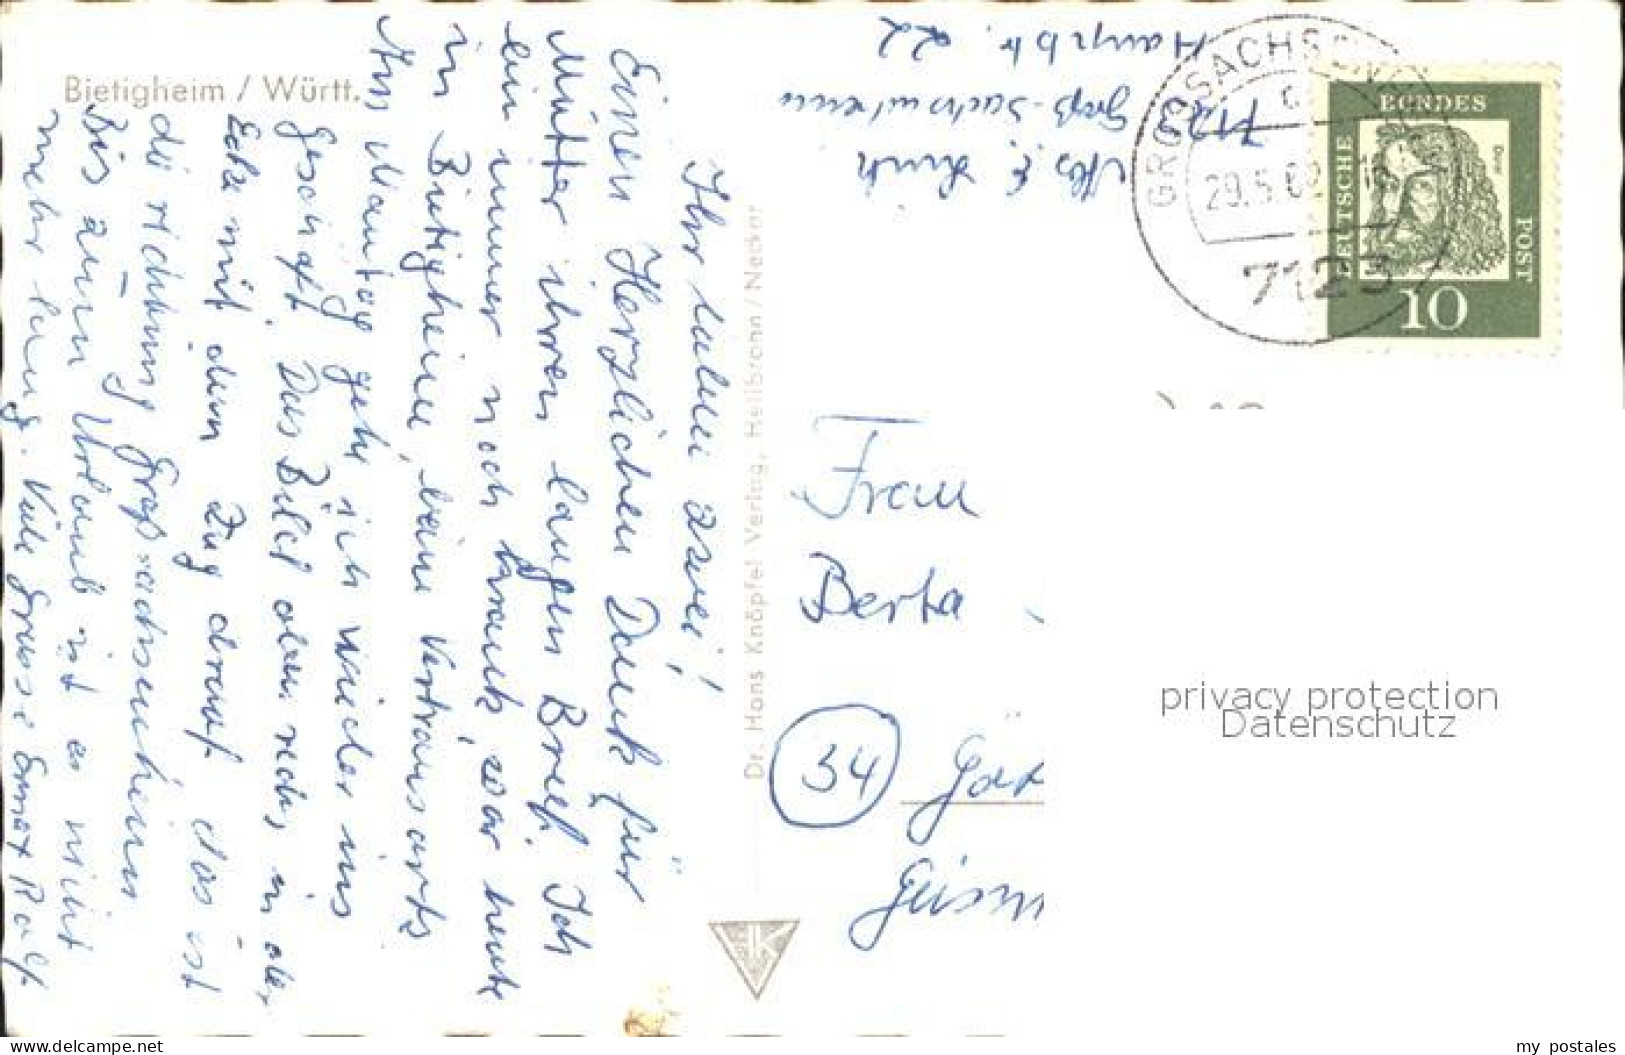 Bietigheim / Württ.
Ihr lieben zwei!
Einen Herzlichen Dank für
Mutter ihren langen Brief. Ich
bin immer noch krank, war heute
in Bietigheim, beim Vertrauensarts
Am Montag gehe ich wieder ins
Geschäft. Das Bild oben rechts in der
Ecke mit dem Zug drauf das ist
die richtung Großsachsenheim
Bis zum Urlaub ist es nicht
mehr lang. Viele Grüsse Ralf
Dr. Hans Knöpfel Verlag, Heilbronn / Neckar
7123
Groß-Sachsenheim
22
GROSSACHSENHEIM
29.5.62
7123
BUNDES
DEUTSCHE
POST
Dürer
10
Frau
Berta
34
privacy protection
Datenschutz
www.delcampe.net
my_postales